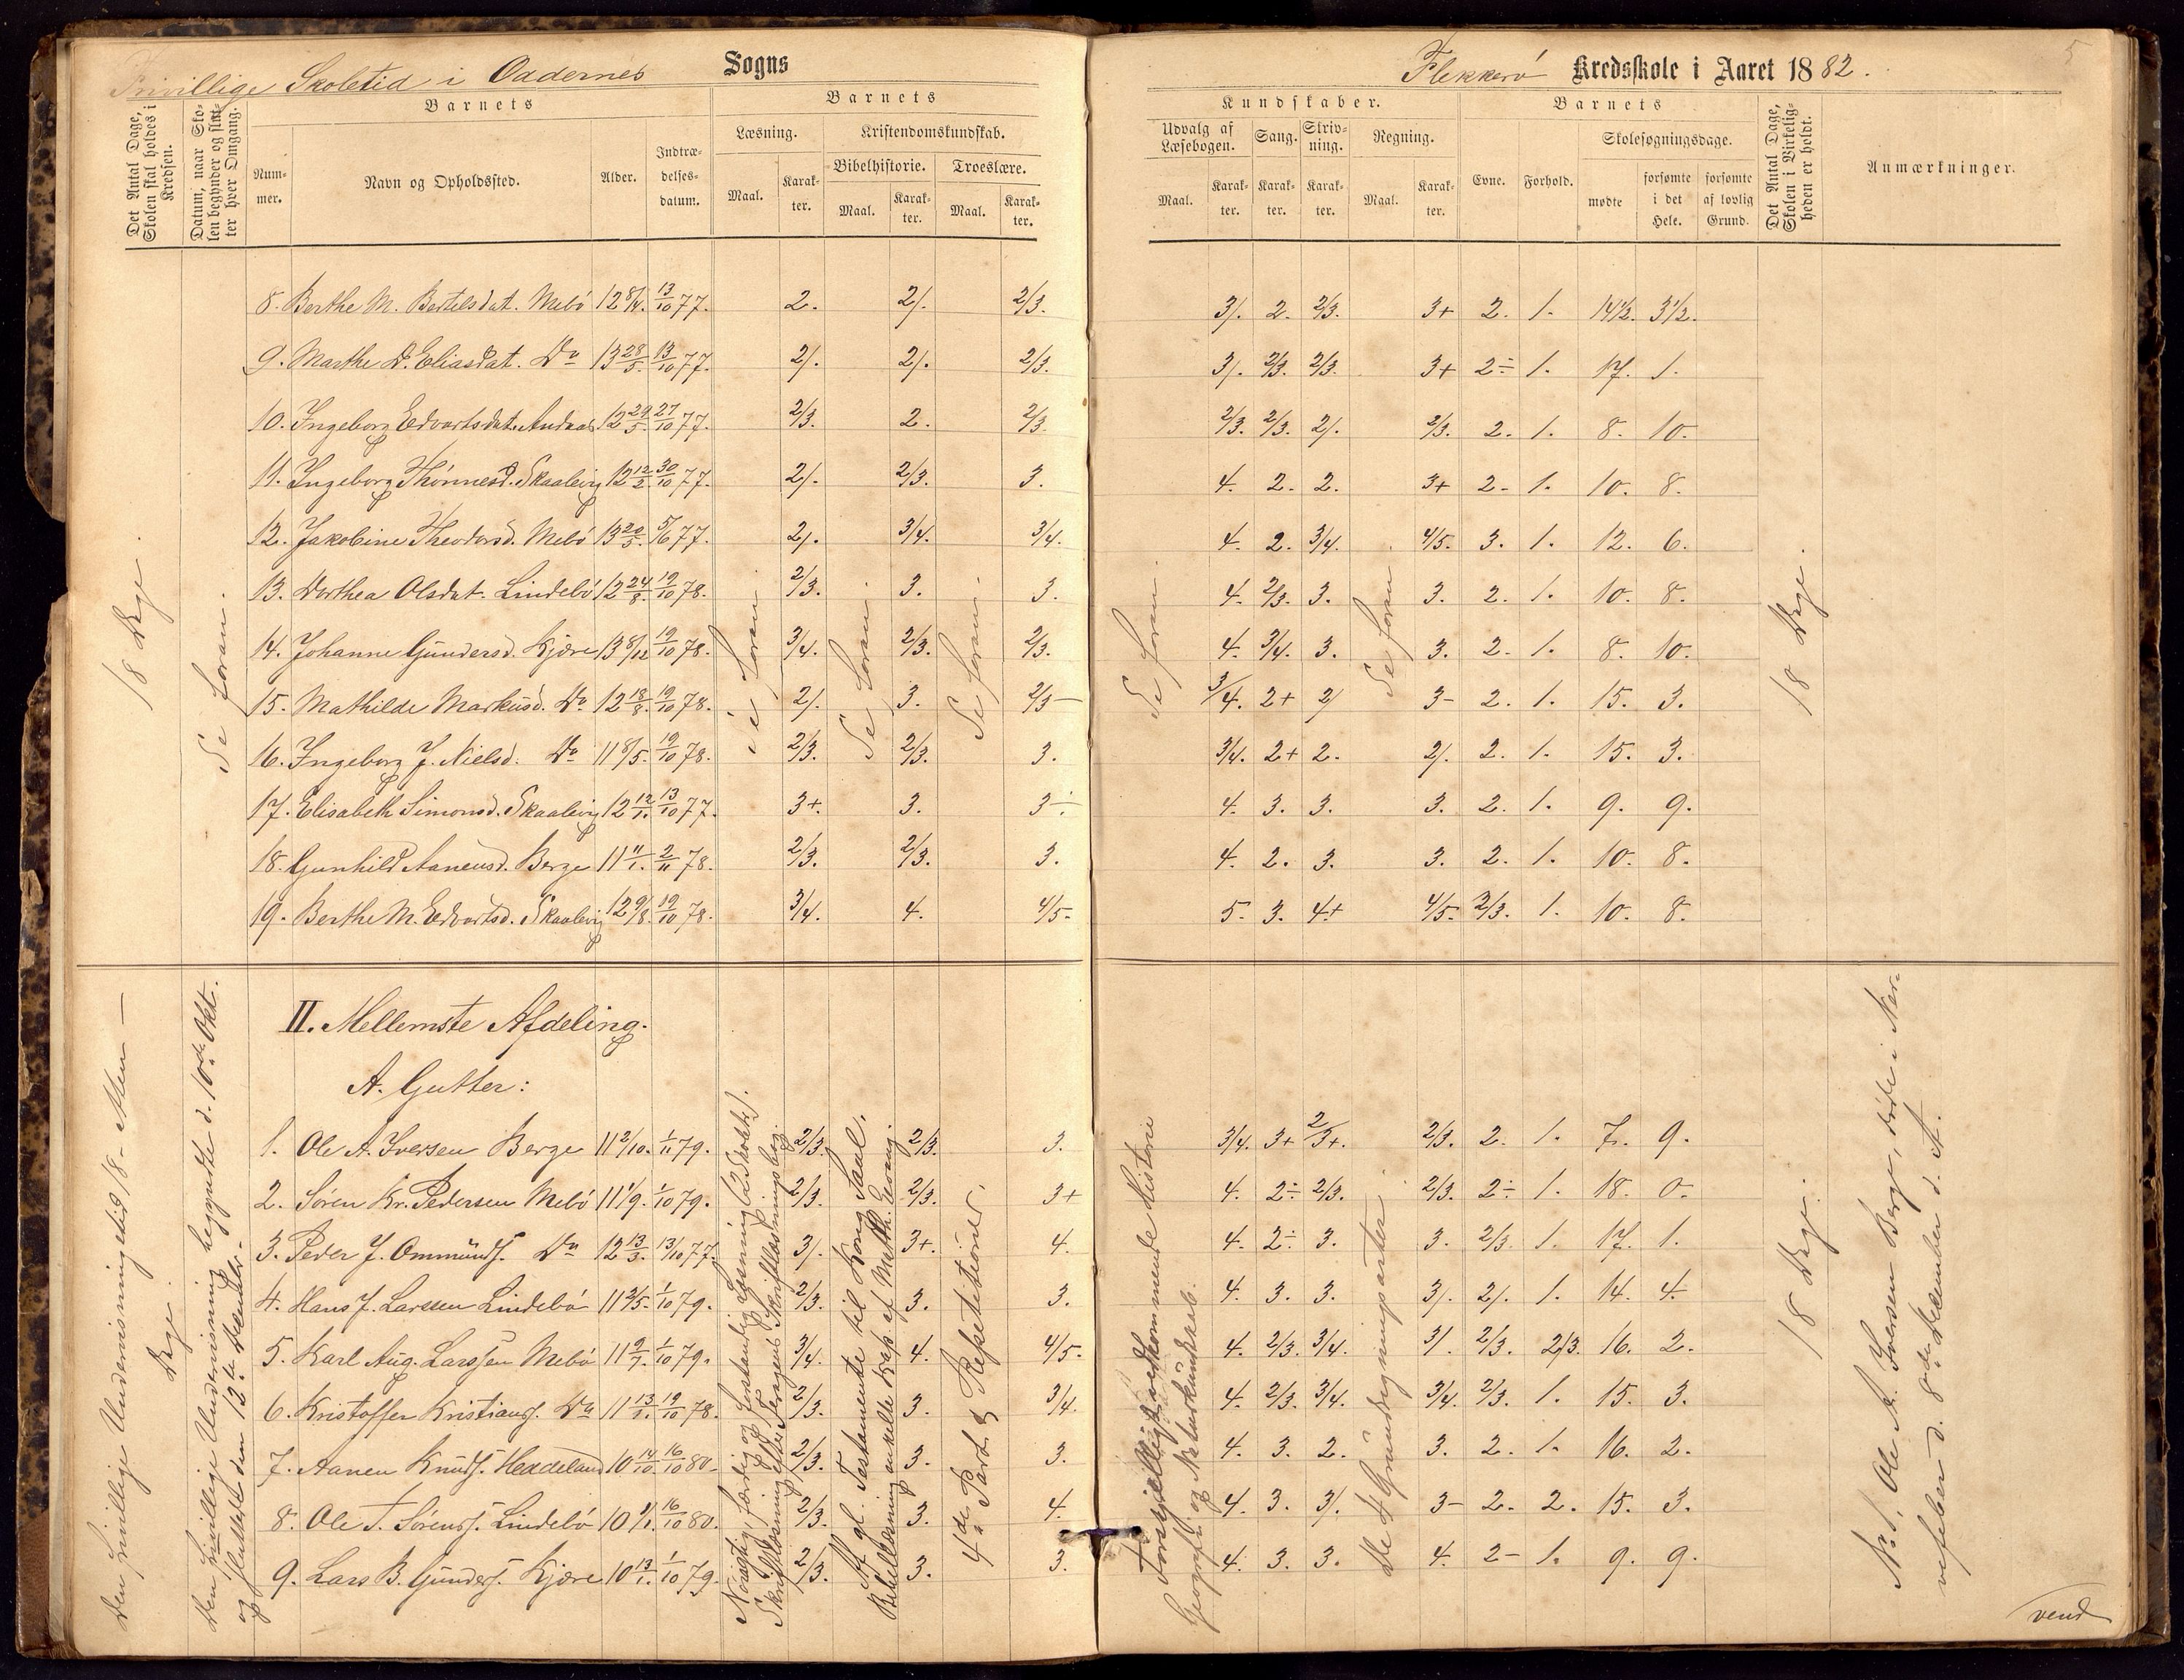 Frivillige Skoletid i Oddernes Sogns
Flekkerø Kredsskole i Aaret 1882.
5
Det Antal Dage, Skolen skal holdes i Kredsen.
Datum, naar Skolen begynder og slutter hver Omgang.
Barnets
Nummer.
Navn og Opholdssted.
Alder.
Indtrædelsesdatum.
Barnets
Læsning.
Kristendomskundskab.
Bibelhistorie.
Troeslære.
Maal. Karakter. Maal. Karakter. Maal. Karakter.
Kundskaber.
Udvalg af Læsebogen. Sang. Skrivning. Regning.
Maal. Karakter. Karakter. Karakter. Maal. Karakter.
Barnets
Evne. Forhold.
Skolesøgningsdage.
mødte forsømte i det Hele. forsømte af lovlig Grund.
Det Antal Dage, Skolen i Virkeligheden er holdt.
Anmærkninger.
18 Dage.
Se foran.
Se foran.
Se foran.
Se foran.
Se foran.
Se foran
18 Dage.
8. Berthe M. Bertelsdat. Mebø 12 8/4. 13/10 77. 2. 2/. 2/3. 3/. 2. 2/3. 3+ 2. 1. 14 1/2. 3 1/2.
9. Marthe D. Eliasdat. Do 13 28/5. 13/10 77. 2/. 2/. 2/3. 3/. 2/3. 2/3. 3+ 2÷ 1. 17. 1.
10. Ingeborg Edvartsdat. Andaas 12 29/5. 27/10 77. 2/3. 2. 2/3. 2/3. 2/3. 2/. 2/3. 2. 1. 8. 10.
11. Ingeborg Thønnesd. Skaalevig 12 12/2. 30/10 77. 2/. 2/3. 3. 4. 2. 2. 3+ 2- 1. 10. 8.
12. Jakobine Theodorsd. Mebø 13 20/5. 5/16 77. 2/. 3/4. 3/4. 4. 2. 3/4. 4/5. 3. 1. 12. 6.
13. Dorthea Olsdat. Lindebø 12 24/8. 19/10 78. 2/3. 3. 3. 4. 2/3. 3. 3. 2. 1. 10. 8.
14. Johanne Gundersd. Kjære 13 8/12 19/10 78. 3/4. 2/3. 2/3. 4. 3/4. 3. 3. 2. 1. 8. 10.
15. Mathilde Markusd. Do 12 18/8. 19/10 78. 2/. 3. 2/3- 3/4. 2+ 2/ 3- 2. 1. 15. 3.
16. Ingeborg J. Nielsd. Do 11 8/5. 19/10 78. 2/3. 2/3. 3. 3/4. 2+ 2. 2/. 2. 1. 15. 3.
17. Elisabeth Simonsd. Skaalevig 12 12/1. 13/10 77. 3+. 3. 3÷ 4. 3. 3. 3. 2. 1. 9. 9.
18. Gunhild Aanensd. Berge 11 11/1. 2/11 78. 2/3. 2/3. 3. 4. 2. 3. 3. 2. 1. 10. 8.
19. Berthe M. Edvartsd. Skaalevig 12 9/8. 19/10 78. 3/4. 4. 4/5. 5. 3. 4+ 4/5. 2/3. 1. 10. 8.
II. Mellemste Afdeling.
A. Gutter:
Den frivillige Undervisningstid 18 - Atten - Dage.
Den frivillige Undervisning begyndte d. 10de Okt.
og sluttede den 12te Desember.
Nøiagtig, færdig og forstandig Læsning (2 Skoletr.).
Skriftlæsning efter Skriftlæsningsbog.
Af gl. Testamente til Kong Saul.
Bibellæsning enkelte Kap. af Matth. Evang.
4de Part & Repetitioner.
Forskjelligt vedkommende Historie
Geografi og Naturkundskab.
De 4 Grundregningsarter.
18 Dage.
No 1, Ole A. Iversen Berge, døde i Nervefeber d. 8de Desember d. A.
1. Ole A. Iversen Berge 11 2/10. 1/11 79. 2/3. 2/3. 3. 3/4. 3+ 2/3+. 2/3. 2. 1. 7. 9.
2. Søren Kr. Pedersen Mebø 11 1/9. 1/10 79. 2/3. 2/3. 3+ 4. 2÷ 2/3. 2/3. 2÷ 1. 18. 0.
3. Peder J. Ommunds. Do 12 13/3. 13/10 77. 3/. 3+. 4. 4. 2÷ 3. 3. 2/3. 1. 17. 1.
4. Hans J. Larssen Lindebø 11 2/5. 1/10 79. 2/3. 3. 3. 4. 3. 3. 3/. 2/. 1. 14. 4.
5. Karl Aug. Larssen Mebø 11 9/7. 1/10 79. 3/4. 4. 4/5. 4. 2/3. 3/4. 3/. 2/3. 2/3. 16. 2.
6. Kristoffer Kristians. Do 11 13/1. 19/10 78. 2/3. 3. 3/4. 4. 2/3. 3/4. 3/4. 2/3. 1. 15. 3.
7. Aanen Knuds. Heddeland 10 14/10. 16/10 80. 2/3. 3. 3. 4. 3. 2. 3. 2. 1. 16. 2.
8. Ole T. Sørens. Lindebø 10 1/1. 16/10 80. 2/3. 3. 4. 4. 3. 3/. 3- 2. 2. 15. 3.
9. Lars B. Gunders. Kjære 10 13/1. 1/10 79. 2/3. 3. 3. 4. 3. 3. 4. 2- 1. 9. 9.
vend